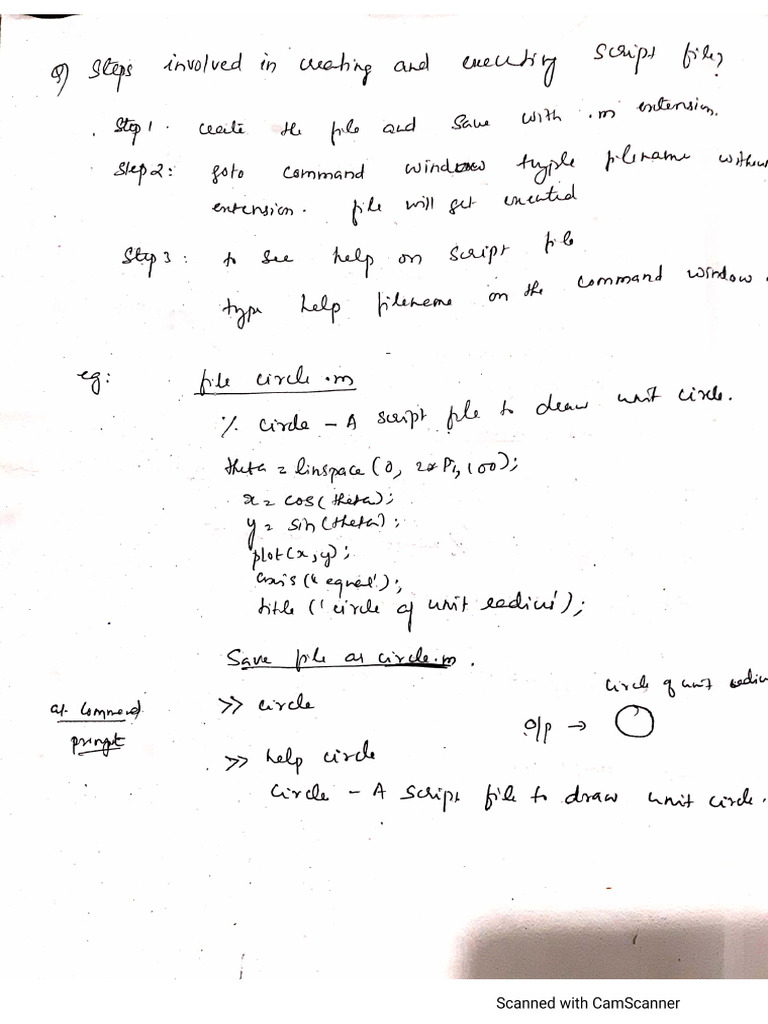 Q) Steps involved in creating and executing script file?
. Step 1. create the file and save with .m extension.
Step 2: goto command window typle filename without
extension. file will get executed
Step 3: to see help on script file
type help filename on the command window.
eg: file circle .m
% circle – A script file to draw unit circle.
theta = linspace (0, 2*Pi, 100);
x = cos(theta);
y = sin(theta);
plot(x,y);
axis('equal');
title ('circle of unit radius');
Save file as circle.m.
at command prompt
>> circle
o/p → circle of unit radius
>> help circle
circle – A script file to draw unit circle.
Scanned with CamScanner